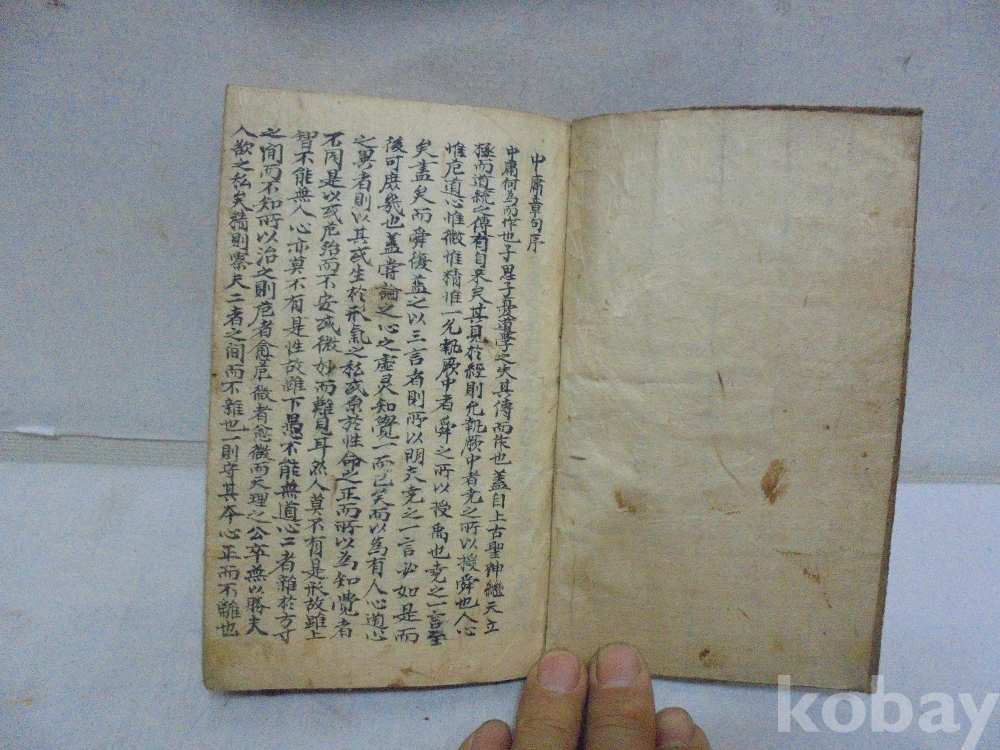 中庸章句序
中庸何爲而作也子思子憂道學之失其傳而作也蓋自上古聖神繼天立
極而道統之傳有自来矣其見於經則允執厥中者尭之所以授舜也人心
惟危道心惟微惟精惟一允執厥中者舜之所以授禹也尭之一言至
矣盡矣而舜復益之以三言者則所以明夫尭之一言必如是而
後可庶幾也蓋嘗論之心之虛灵知覺一而已矣而以為有人心道心
之異者則以其或生於形氣之私或原於性命之正而所以為知覺者
不同是以或危殆而不安或微妙而難見耳然人莫不有是形故雖上
智不能無人心亦莫不有是性故雖下愚不能無道心二者雜於方寸
之間而不知所以治之則危者愈危微者愈微而天理之公卒無以勝夫
人欲之私矣精則察夫二者之間而不雜也一則守其本心正而不離也
kobay